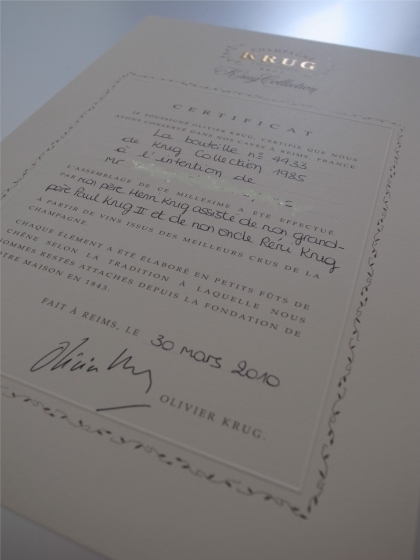 CHAMPAGNE
KRUG
Krug Collection
CERTIFICAT
JE SOUSSIGNÉ OLIVIER KRUG, CERTIFIE QUE NOUS
AVONS CONSERVÉ DANS NOS CAVES À REIMS, FRANCE
La bouteille n° 4933
de Krug Collection 1985
à l'intention de
Mr
L'ASSEMBLAGE DE CE MILLÉSIME A ÉTÉ EFFECTUÉ
PAR mon père Henri Krug assisté de mon grand-
père Paul Krug II et de mon oncle Rémi Krug
À PARTIR DE VINS ISSUS DES MEILLEURS CRUS DE LA
CHAMPAGNE.
CHAQUE ÉLÉMENT A ÉTÉ ÉLABORÉ EN PETITS FÛTS DE
CHÊNE SELON LA TRADITION À LAQUELLE NOUS
SOMMES RESTÉS ATTACHÉS DEPUIS LA FONDATION DE
NOTRE MAISON EN 1843.
FAIT À REIMS, LE 30 mars 2010
Olivier Krug
OLIVIER KRUG.